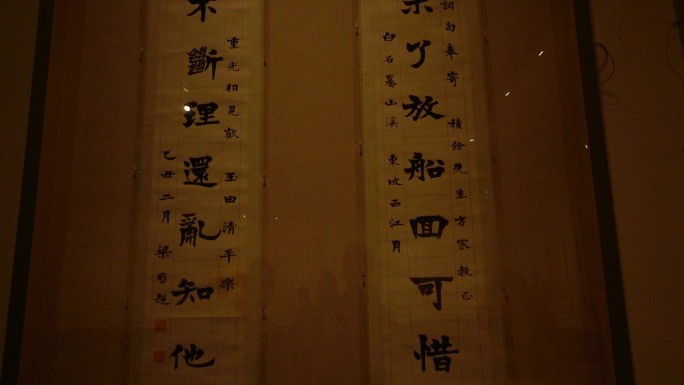 詞句奉寄 積餘先生方家教正
未了放船回可惜
白石驀山溪 東坡西江月
重光相見歡 玉田清平樂
不斷理還亂知他
乙丑二月 梁啟超